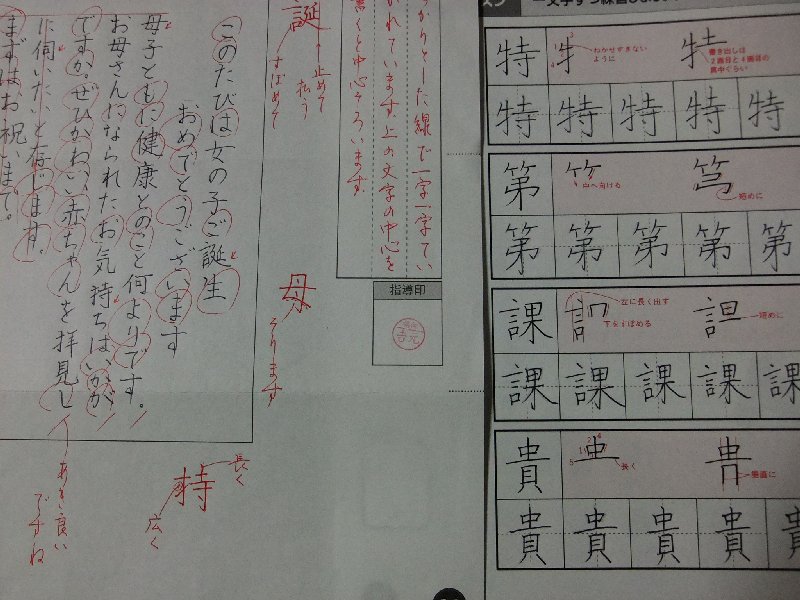 このたびは女の子ご誕生
おめでとうございます
母子ともに健康とのこと何よりです。
お母さんになられたお気持ちはいかが
ですか。ぜひかわいい赤ちゃんを拝見し
に伺いたいと存じます。
まずはお祝いまで。
誕
止めて
払う
すぼめて
母
そります
持
長く
広く
あき良い
ですね
した線で一字一字てい
かれています。上の文字の中心を
書くと中心そろいます。
指導印
特
わわせすぎない
ように
書き出しは
2画目と4画目の
真中ぐらい
特 特 特 特 特
第
中へ向ける
短めに
第 第 第 第 第
課
左に長く出す
下をすぼめる
短めに
課 課 課 課 課
貴
長く
垂直に
貴 貴 貴 貴 貴